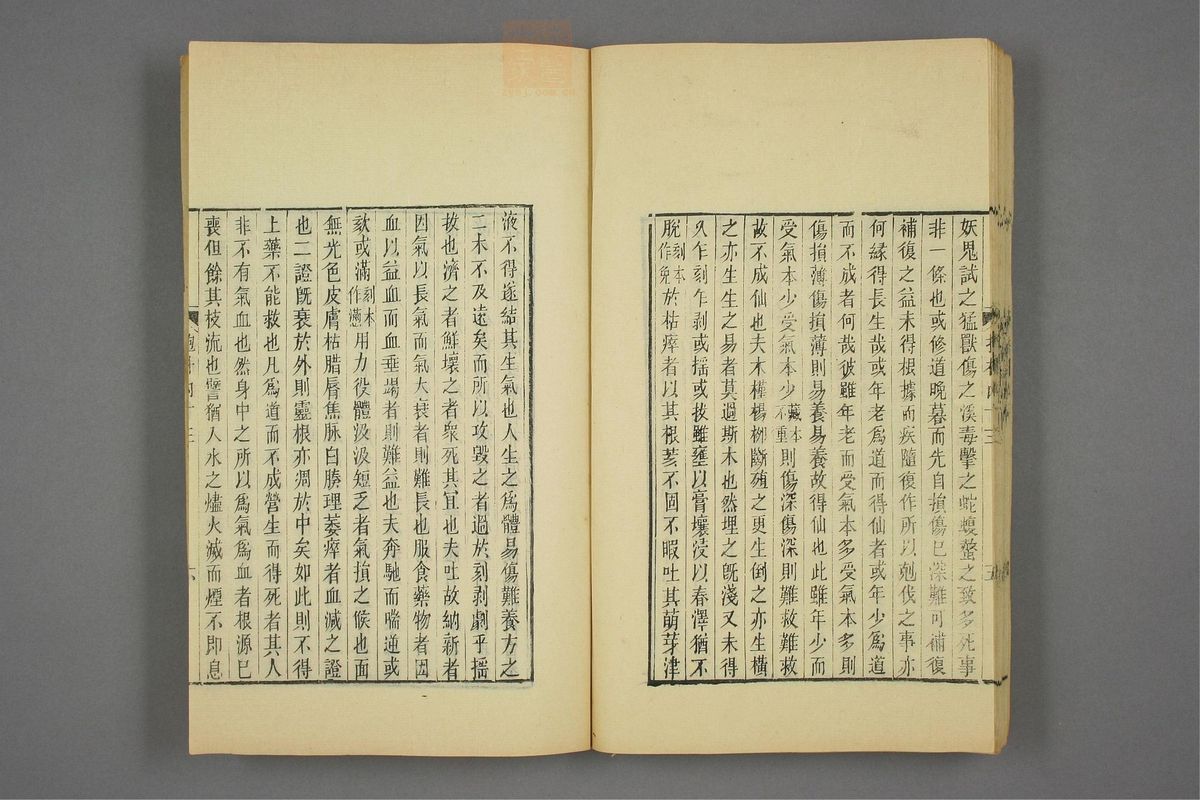 妖鬼試之猛獸傷之溪毒擊之蛇蝮螫之致多死事
非一條也或修道晚暮而先自損傷已深難可補復
補復之益未得根據而疾隨復作所以剋伐之事亦
何緣得長生哉或年老爲道而得仙者或年少爲道
而不成者何哉彼雖年老而受氣本多受氣本多則
傷損薄傷損薄則易養易養故得仙也此雖年少而
受氣本少受氣本少藏本不重則傷深傷深則難救難救
故不成仙也夫木槿楊柳斷殖之更生倒之亦生橫
之亦生生之易者莫過斯木也然埋之旣淺又未得
久乍刻乍剥或搖或拔雖壅以膏壤浸以春澤猶不
脫刻本作免於枯瘁者以其根荄不固不暇吐其萌芽津
液不得遂結其生氣也人生之爲體易傷難養方之
二木不及遠矣而所以攻毀之者過於刻剥劇乎搖
拔也濟之者鮮壞之者衆死其宜也夫吐故納新者
因氣以長氣而氣大衰者則難長也服食藥物者因
血以益血而血垂竭者則難益也夫奔馳而喘逆或
欬或滿刻本作懣用力役體汲汲短乏者氣損之候也面
無光色皮膚枯腊脣焦脉白腠理萎瘁者血減之證
也二證旣衰於外則靈根亦凋於中矣如此則不得
上藥不能救也凡爲道而不成營生而得死者其人
非不有氣血也然身中之所以爲氣爲血者根源已
喪但餘其枝流也譬猶入水之燼火滅而煙不即息